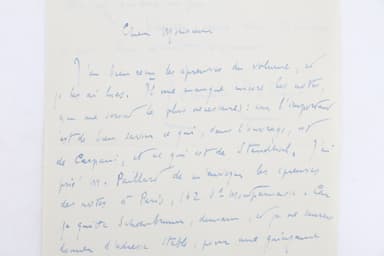 Cher Monsieur
J'ai bien reçu les épreuves du volume, et
je les ai lues. Il me manque encore les notes,
qui me seront le plus nécessaires : car l'important
est de bien savoir ce qui, dans l'ouvrage, est
de Carpani, et ce qui est de Stendhal. J'ai
prié M. Paillart de m'envoyer les épreuves
des notes à Paris, 162 Bd Montparnasse. Car
je quitte Schoenbrunn, demain, et je ne saurais
donner d'adresse stable, pour une quinzaine